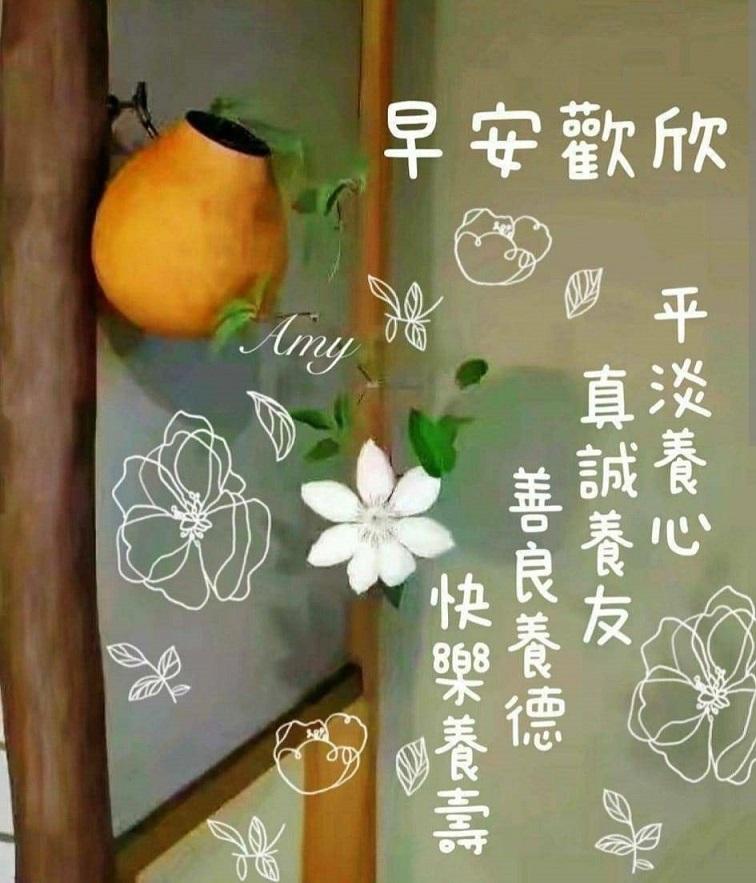 早安歡欣
平淡養心
真誠養友
善良養德
快樂養壽
Amy